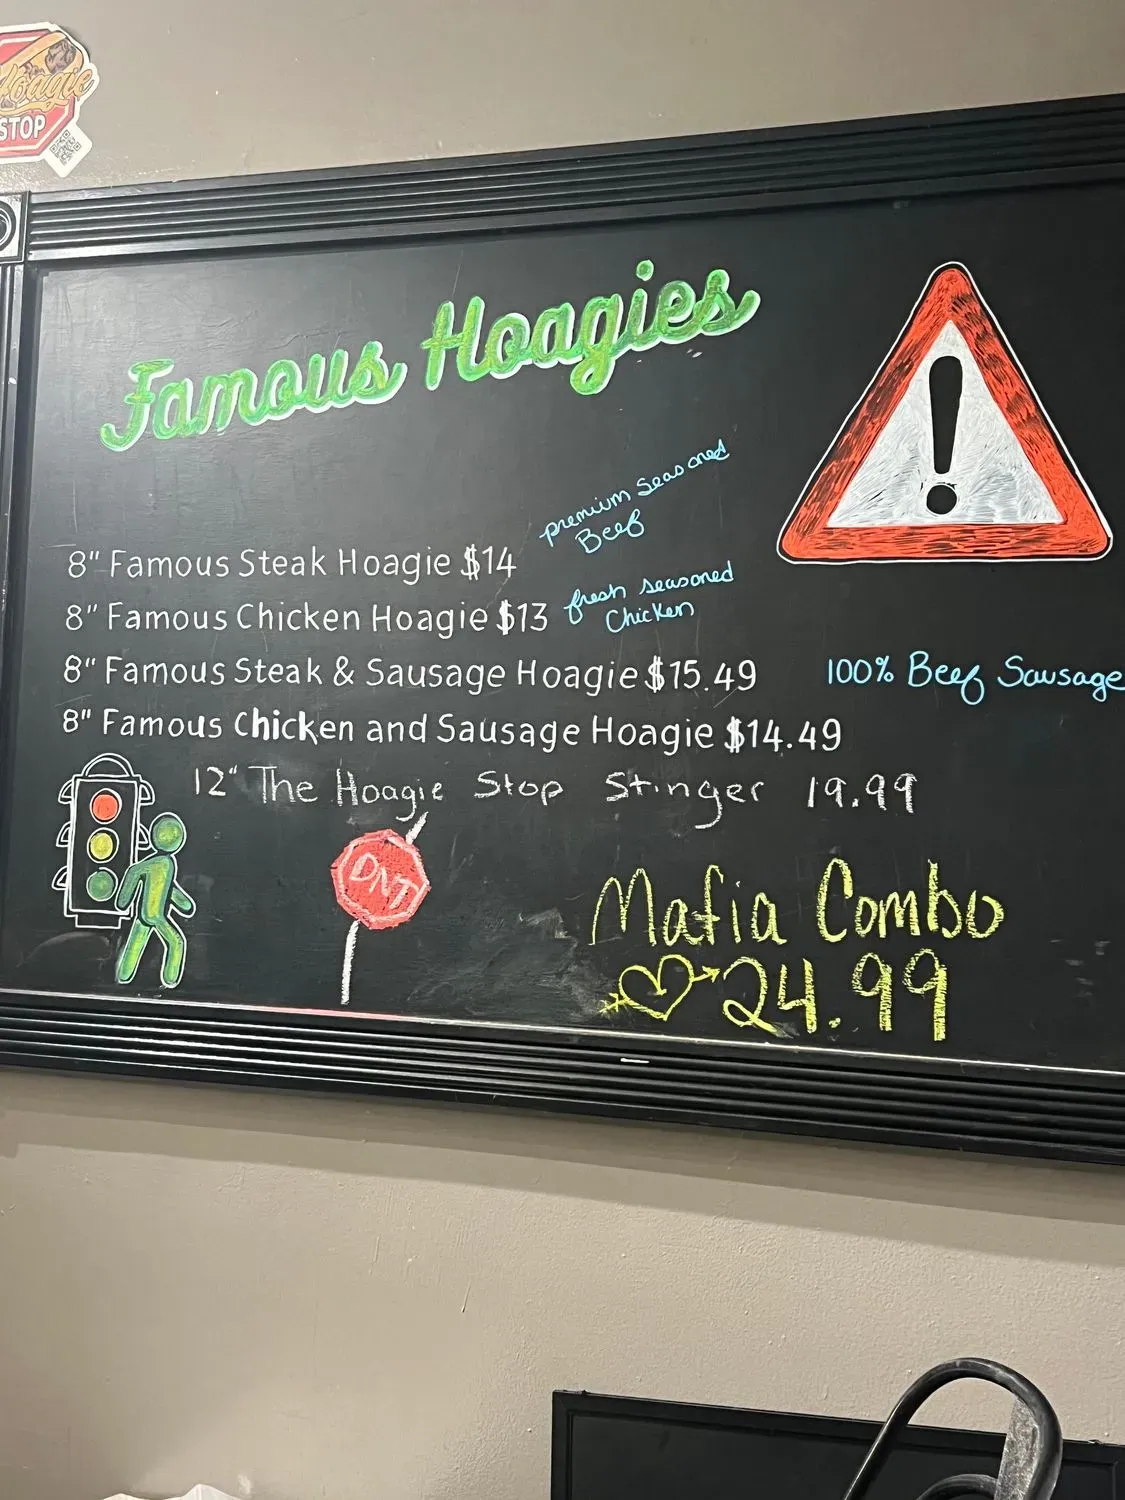 Hoagie
STOP
Famous Hoagies
premium Seasoned
Beef
8" Famous Steak Hoagie $14
fresh seasoned
Chicken
8" Famous Chicken Hoagie $13
8" Famous Steak & Sausage Hoagie $15.49
100% Beef Sausage
8" Famous Chicken and Sausage Hoagie $14.49
12" The Hoagie Stop Stinger 19.99
DNT
Mafia Combo
24.99